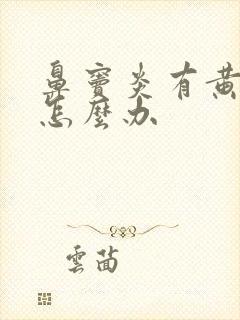 鼻窦炎有黄
怎麼办
雲苗